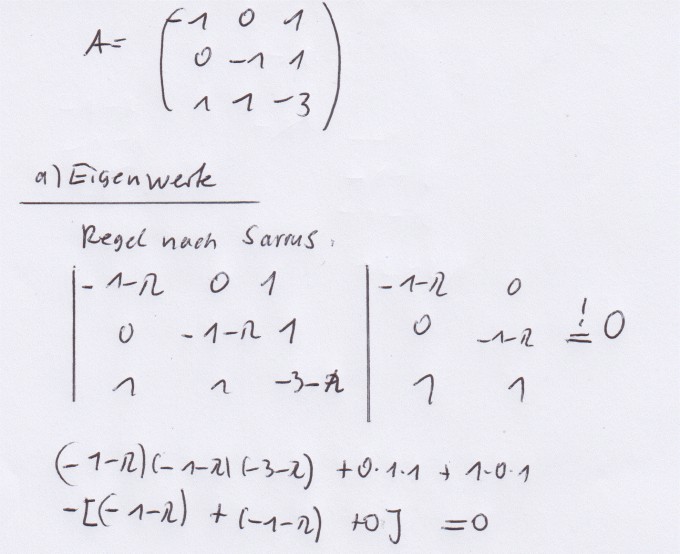 A= ( -1 0 1
0 -1 1
1 1 -3 )
a) Eigenwerte
Regel nach Sarrus.
| -1-λ 0 1 | -1-λ 0
0 -1-λ 1 | 0 -1-λ != 0
1 1 -3-λ | 1 1
(-1-λ)(-1-λ)(-3-λ) +0·1·1 + 1·0·1
-[(-1-λ) + (-1-λ) +0] =0